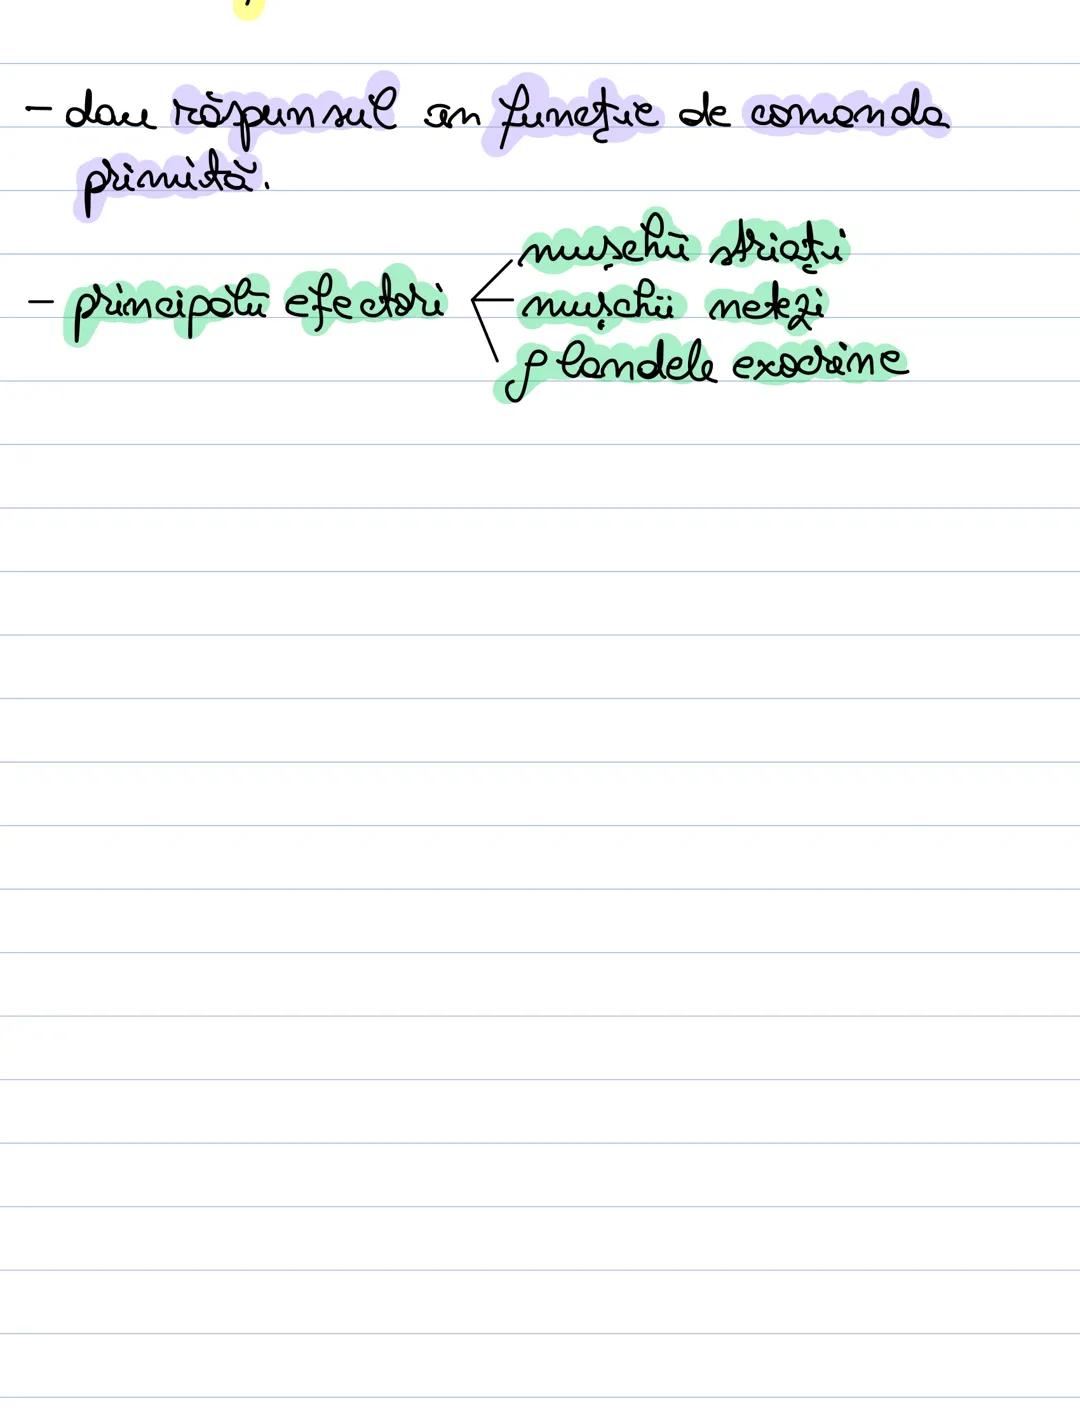 - dau răspunsul în funcție de comanda
primită.
- principalii efectori
mușchii striați
mușchii netezi
glandele exocrine